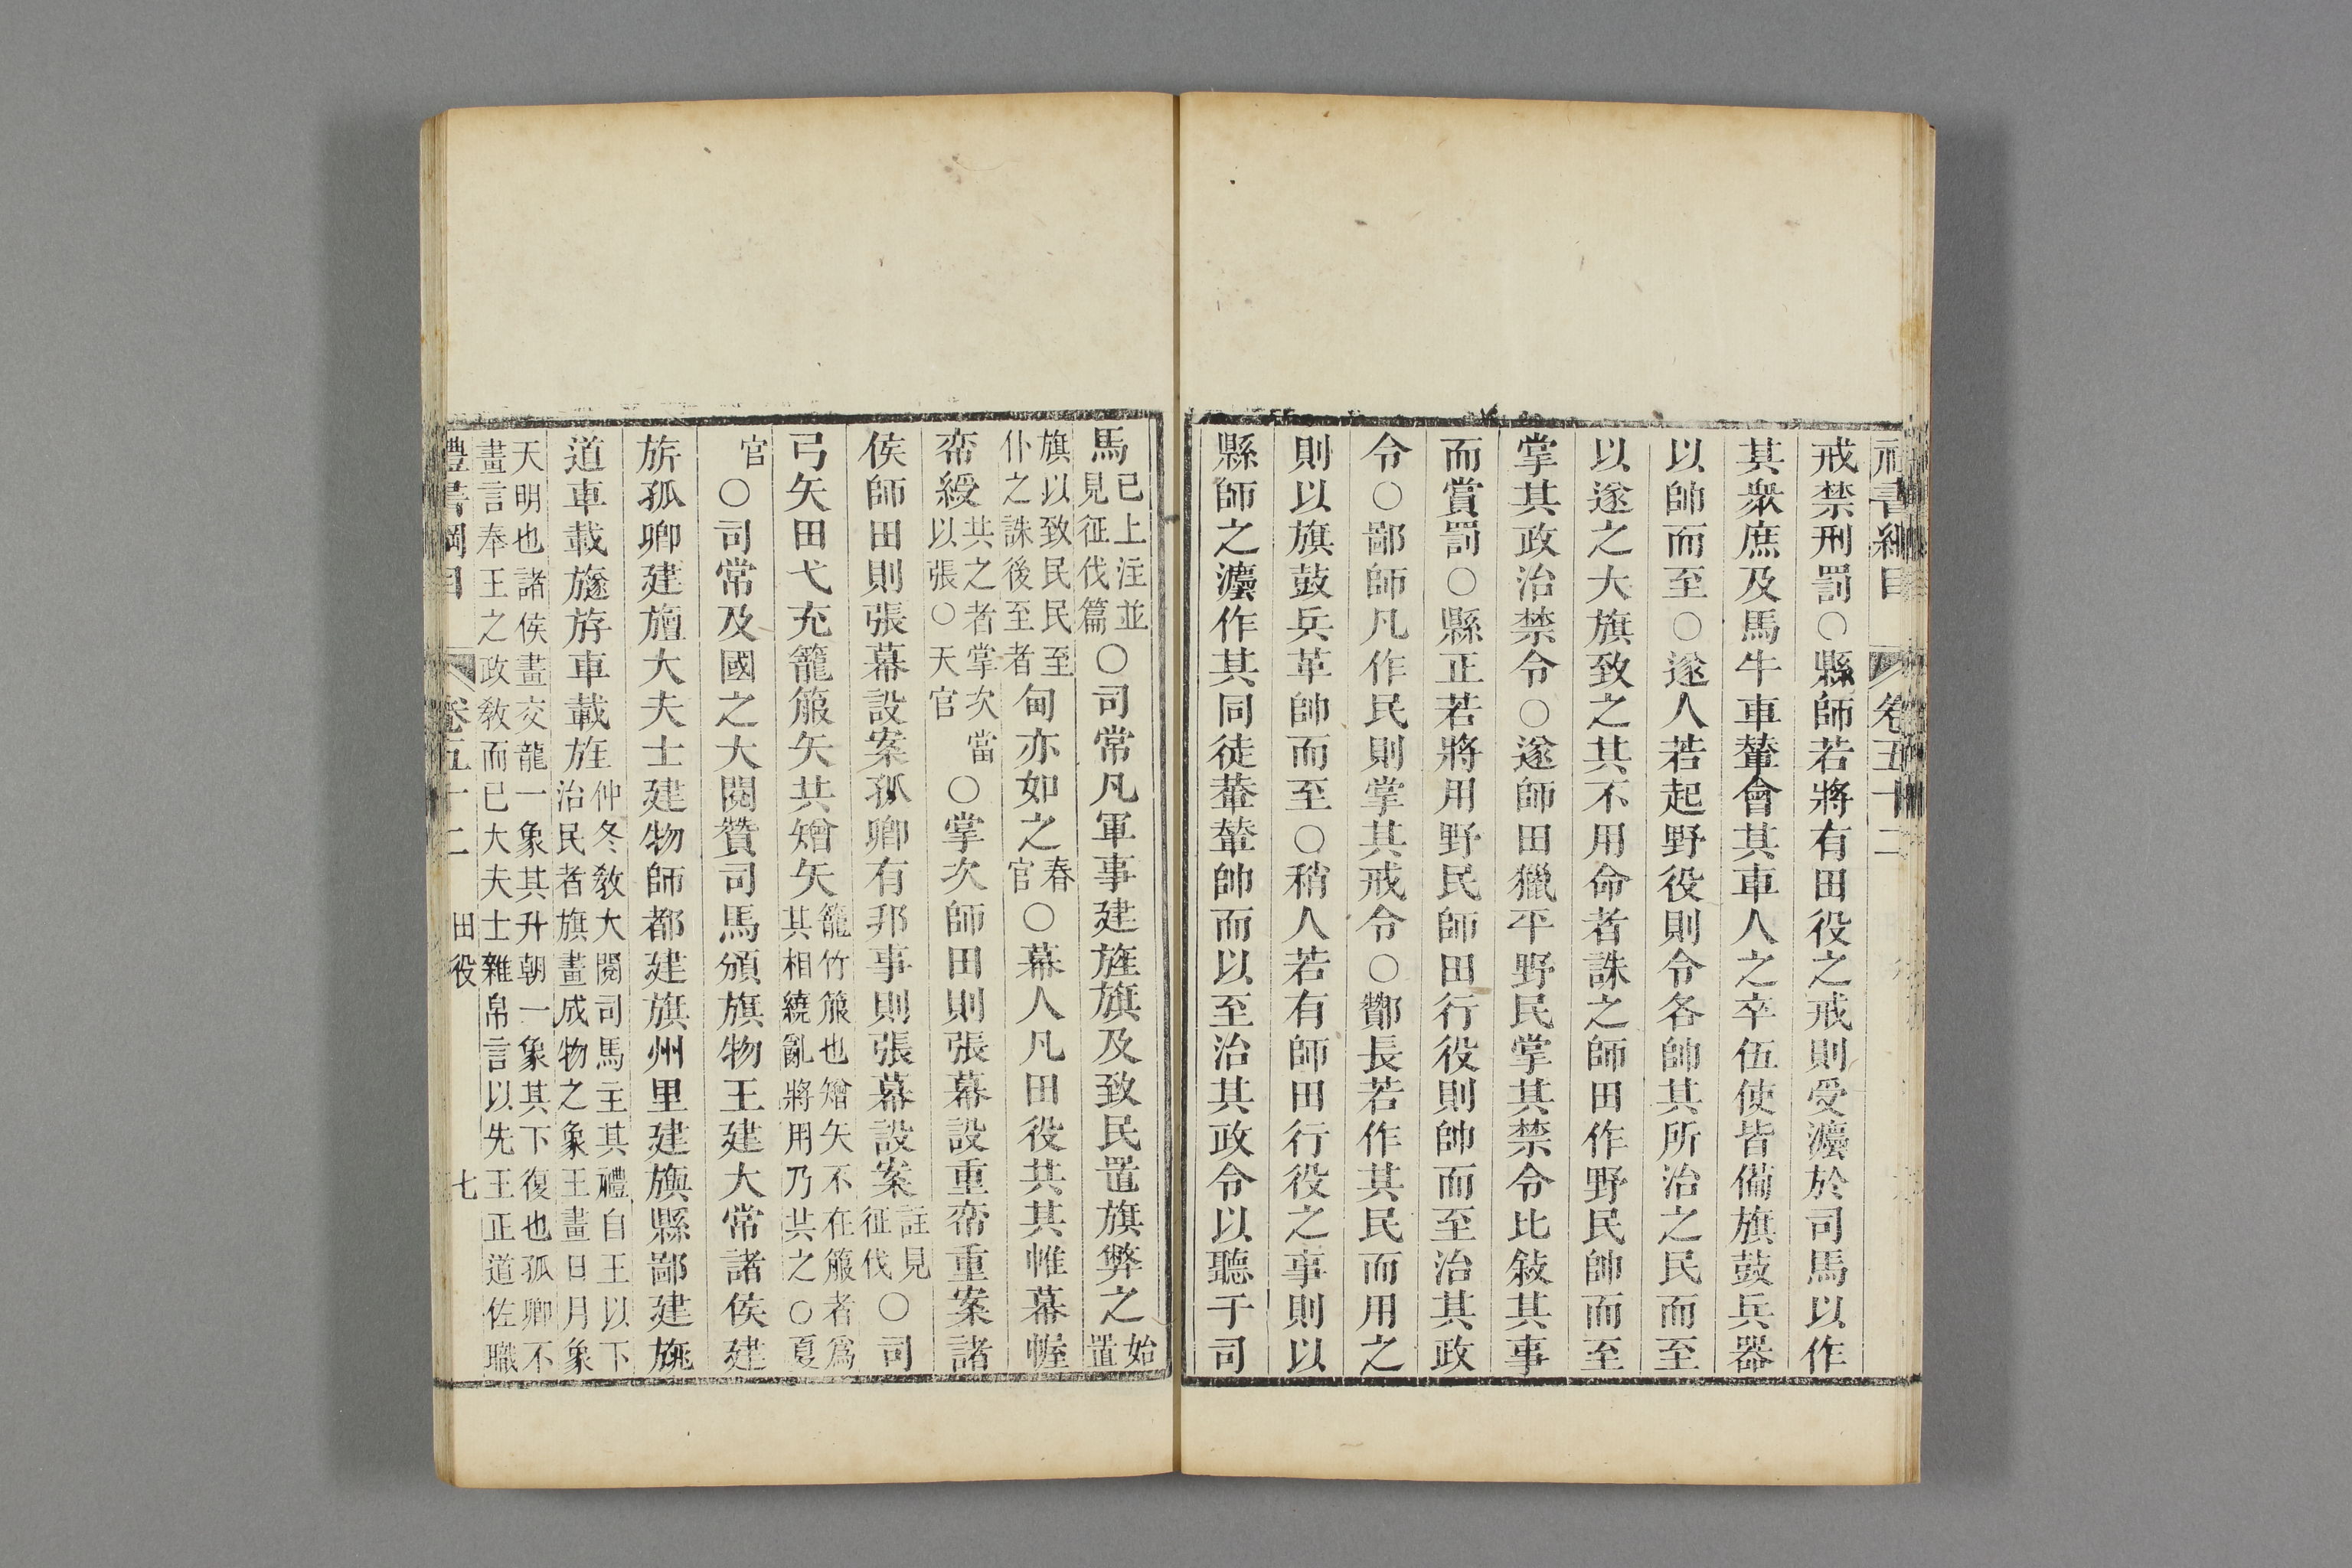 禮書綱目 卷五十二
戒禁刑罰○縣師若將有田役之戒則受灋於司馬以作
其衆庶及馬牛車輦會其車人之卒伍使皆備旗鼓兵器
以帥而至○遂人若起野役則令各帥其所治之民而至
以遂之大旗致之其不用命者誅之師田作野民帥而至
掌其政治禁令○遂師田獵平野民掌其禁令比敍其事
而賞罰○縣正若將用野民師田行役則帥而至治其政
令○鄙師凡作民則掌其戒令○酇長若作其民而用之
則以旗鼓兵革帥而至○稍人若有師田行役之事則以
縣師之灋作其同徒輂輦帥而以至治其政令以聽于司
馬已上注並見征伐篇○司常凡軍事建旌旗及致民置旗弊之始置
旗以致民民至仆之誅後至者甸亦如之春官○幕人凡田役共其帷幕幄
帟綬共之者掌次當以張○天官○掌次師田則張幕設重帟重案諸
侯師田則張幕設案孤卿有邦事則張幕設案註見征伐○司
弓矢田弋充籠箙矢共矰矢籠竹箙也矰矢不在箙者爲其相繞亂將用乃共之○夏
官○司常及國之大閱贊司馬頒旗物王建大常諸侯建
旂孤卿建旜大夫士建物師都建旗州里建旟縣鄙建旐
道車載旞斿車載旌仲冬敎大閱司馬主其禮自王以下治民者旗畫成物之象王畫日月象
天明也諸侯畫交龍一象其升朝一象其下復也孤卿不畫言奉王之政敎而已大夫士雜帛言以先王正道佐職
禮書綱目 卷五十二 田役 七